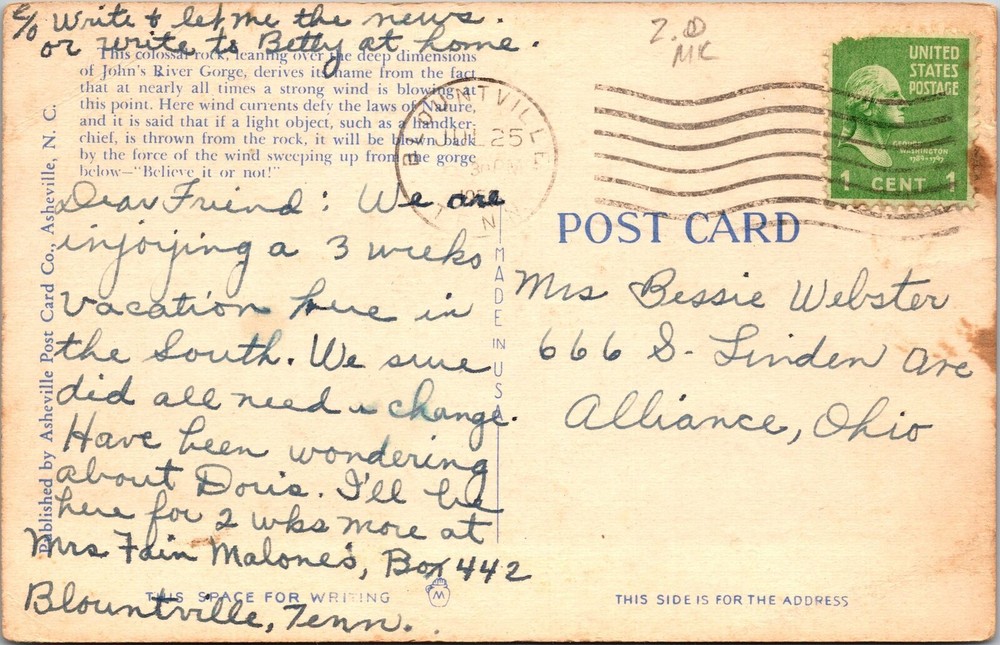 c/o Write & let me the news.
or write to Betty at home.
This colossal rock, leaning over the deep dimensions
of John's River Gorge, derives its name from the fact
that at nearly all times a strong wind is blowing at
this point. Here wind currents defy the laws of Nature,
and it is said that if a light object, such as a handker-
chief, is thrown from the rock, it will be blown back
by the force of the wind sweeping up from the gorge
below—"Believe it or not!"
Dear Friend: We are
injoijing a 3 weeks
vacation here in
the South. We sure
did all need a change.
Have been wondering
about Doris. I'll be
here for 2 wks more at
Mrs Fain Malone's, Box 442
Blountville, Tenn.
THIS SPACE FOR WRITING
Published by Asheville Post Card Co., Asheville, N. C.
MADE IN USA
M
BLOUNTVILLE
JUL 25
TENN
UNITED
STATES
POSTAGE
GEORGE
WASHINGTON
1789-1797
1 CENT 1
POST CARD
Mrs Bessie Webster
666 S. Linden Ave
Alliance, Ohio
THIS SIDE IS FOR THE ADDRESS